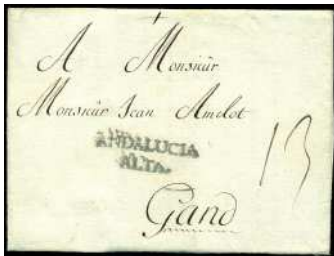 A Monsieur
Monsieur Jean Amelot
ANDALUCIA
ALTA.
13
Gand